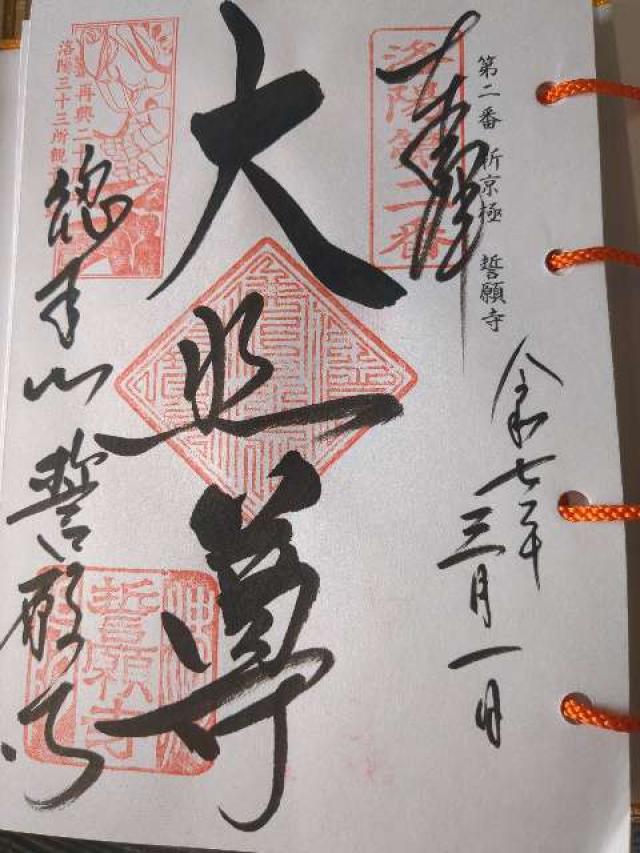 第二番 新京極 誓願寺
奉拝
洛陽第二番
令和七年三月一日
大悲尊
再興二十
洛陽三十三所観
總本山誓願寺
誓願寺